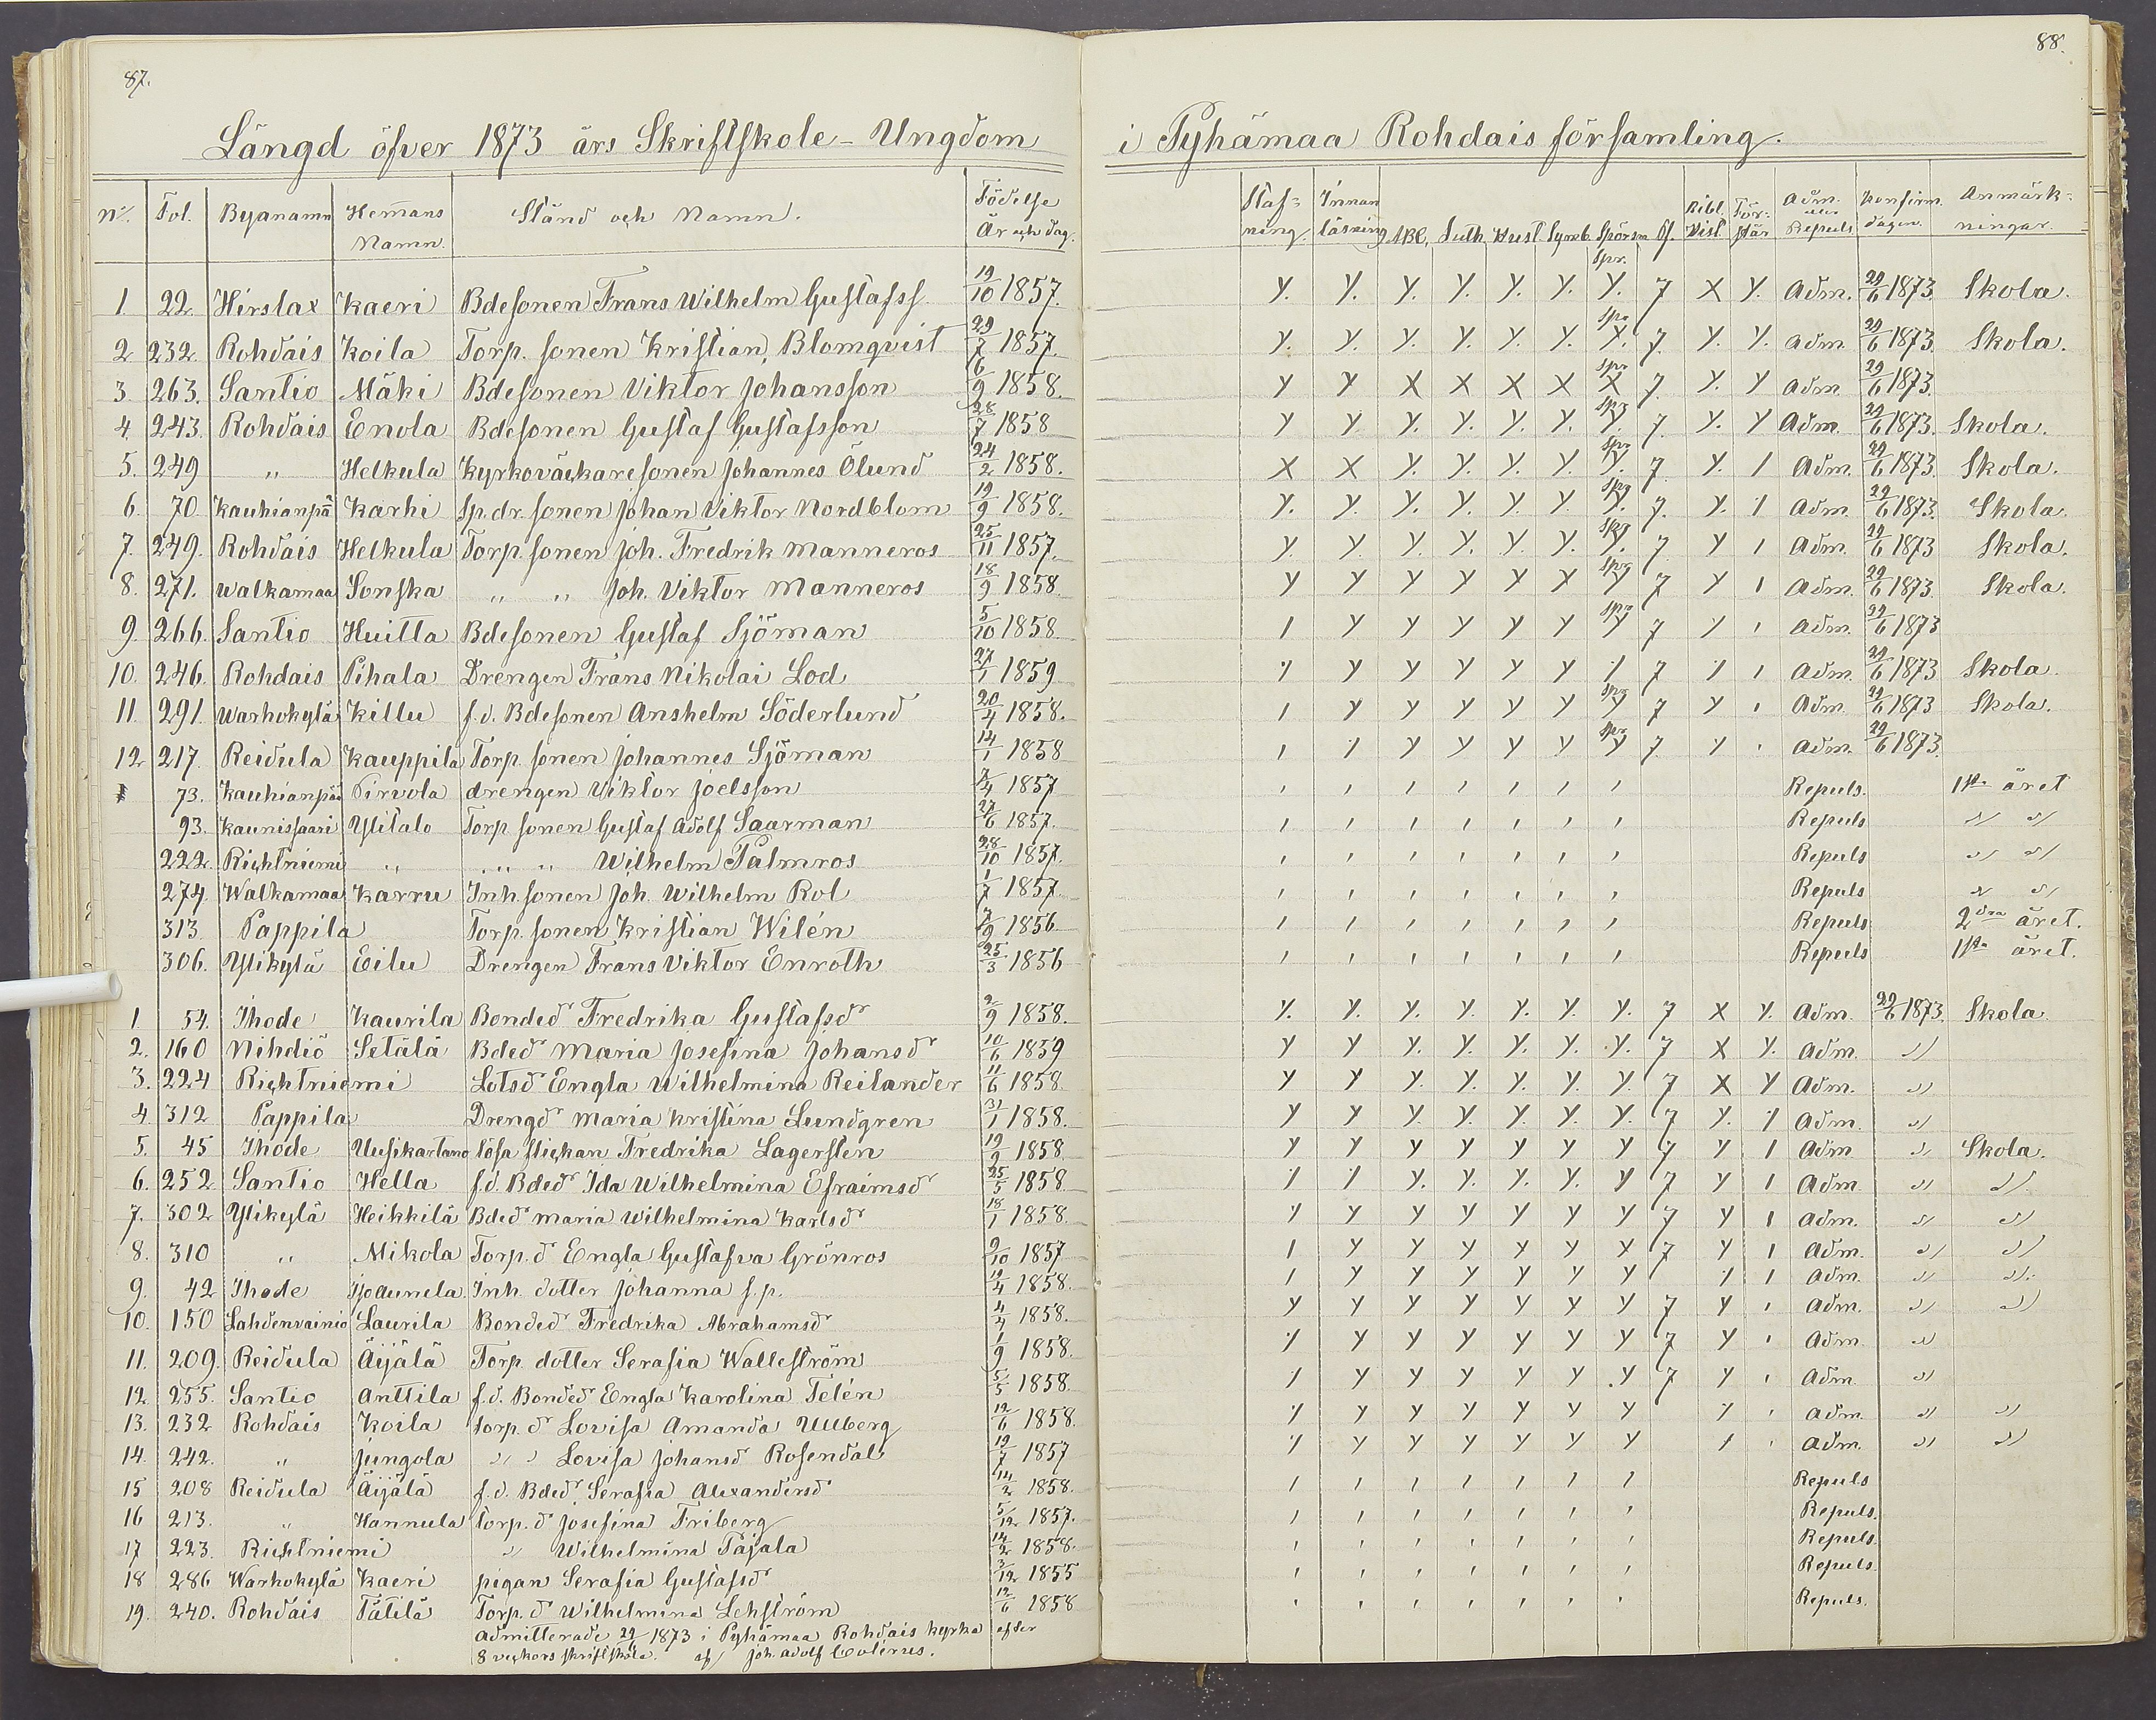 87.
88.
Längd öfver 1873 års Skriftskole-Ungdom i Pyhämaa Rohdais församling.
No. Fol. Byanamn Hemmans Namn. Stånd och Namn. Födelse År och dag. Stafning. Innanläsning ABC, Luth. Hust. Symb. Spörsm. Bibl. Hist. Förstår Adm. eller Repuls Konfirm. dagen. Anmärkningar.
1. 22. Hirslax Kaeri Bdesonen Frans Wilhelm Gustafss. 19/10 1857. Adm. 29/6 1873. Skola.
2 232. Rohdais Koila Torp. sonen Kristian Blomqvist 29/7 1857. Adm. 29/6 1873. Skola.
3. 263. Santio Mäki Bdesonen Viktor Johansson 6/9 1858. Adm. 29/6 1873.
4. 243. Rohdais Enola Bdesonen Gustaf Gustafsson 28/7 1858 Adm. 29/6 1873. Skola.
5. 249 " Helkula Kyrkoväckaresonen Johannes Ölund 24/2 1858. Adm. 29/6 1873. Skola.
6. 70. Kauhianpä Karhi Sp. dr. sonen Johan Viktor Nordblom 19/9 1858. Adm. 29/6 1873. Skola.
7. 249. Rohdais Helkula Torp. sonen Joh. Fredrik Manneros 25/11 1857. Adm. 29/6 1873 Skola.
8. 271. Walkamaa Sonska " " Joh. Viktor Manneros 18/9 1858 Adm. 29/6 1873. Skola.
9 266. Santio Huitta Bdesonen Gustaf Sjöman 5/10 1858 Adm. 29/6 1873
10. 246. Rohdais Pihala Drengen Frans Nikolai Lod 27/1 1859 Adm. 29/6 1873 Skola.
11. 291. Warhokylä Killu f.d. Bdesonen Anshelm Söderlund 20/4 1858. Adm. 29/6 1873 Skola.
12 217. Reidula Kauppila Torp. sonen Johannes Sjöman 14/1 1858 Adm. 29/6 1873.
73. Kauhianpää Pirvola drengen Viktor Joelsson 7/4 1857 Repuls. 1sta året
93. Kaunissaari Ylitalo Torp sonen Gustaf Adolf Saarman 27/6 1857. Repuls " "
222. Richtniemi " " " Wilhelm Palmros 28/10 1857. Repuls " "
274. Walkamaa Karru Inh. sonen Joh. Wilhelm Rol 1/7 1857. Repuls " "
313 Pappila Torp. sonen Kristian Wilén 7/9 1856 Repuls 2dra året.
306. Ylikylä Eilu Drengen Frans Viktor Enroth 25/3 1856 Repuls 1sta året.
1. 54. Ihode Kaurila Bonded:r Fredrika Gustafsd:r 2/9 1858. Adm. 29/6 1873. Skola
2. 160 Nihdiö Setälä Bded:r Maria Josefina Johansd:r 10/6 1859 Adm. "
3. 224 Richtniemi Lotsd:r Engla Wilhelmina Reilander 11/6 1858. Adm. "
4 312 Pappila Drengd:r Maria Kristina Lundgren 31/1 1858. Adm. "
5. 45 Ihode Uusikartano lösa flickan Fredrika Lagersten 19/9 1858. Adm " Skola.
6. 252 Santio Hella f.d. Bded:r Ida Wilhelmina Efraimsd:r 25/5 1858 Adm " "
7. 302 Ylikylä Heikkilä Bded:r Maria Wilhelmina Karlsd:r 18/1 1858. Adm. " "
8. 310 " Mikola Torp. d:r Engla Gustafva Grönros 9/10 1857 Adm. " "
9. 42 Ihode Inh. dotter Johanna f.p. 19/4 1858. Adm. " "
10. 150 Lahdenvainio Laurila Bonded:r Fredrika Abrahamsd:r 4/4 1858. Adm. " "
11. 209. Reidula Äijälä Torp. dotter Serafia Wallström 1/9 1858. Adm. "
12 255. Santio Anttila f.d. Bonded:r Engla Karolina Telén 5/5 1858. Adm. "
13. 232 Rohdais Koila Torp. d:r Lovisa Amanda Ullberg 12/6 1858. Adm. " "
14. 242. " Jungola " " Lovisa Johansd:r Rosendal 19/7 1857 Adm. " "
15 208 Reidula Äijälä f.d. Bded:r Serafia Alexandersd:r 14/2 1858. Repuls
16 213. " Hannula Torp. d:r Josefina Friberg 5/12 1857. Repuls.
17 223. Richtniemi " Wilhelmina Tajala 14/2 1858. Repuls.
18 286 Warhokylä Kaeri pigan Serafia Gustafsd:r 3/12 1855 Repuls.
19. 240. Rohdais Tätilä Torp. d:r Wilhelmina Lehström 12/6 1858 Repuls.
Admitterade 29/6 1873 i Pyhämaa Rohdais kyrka efter
8 veckors skriftskola. af Joh. Adolf Colérus.